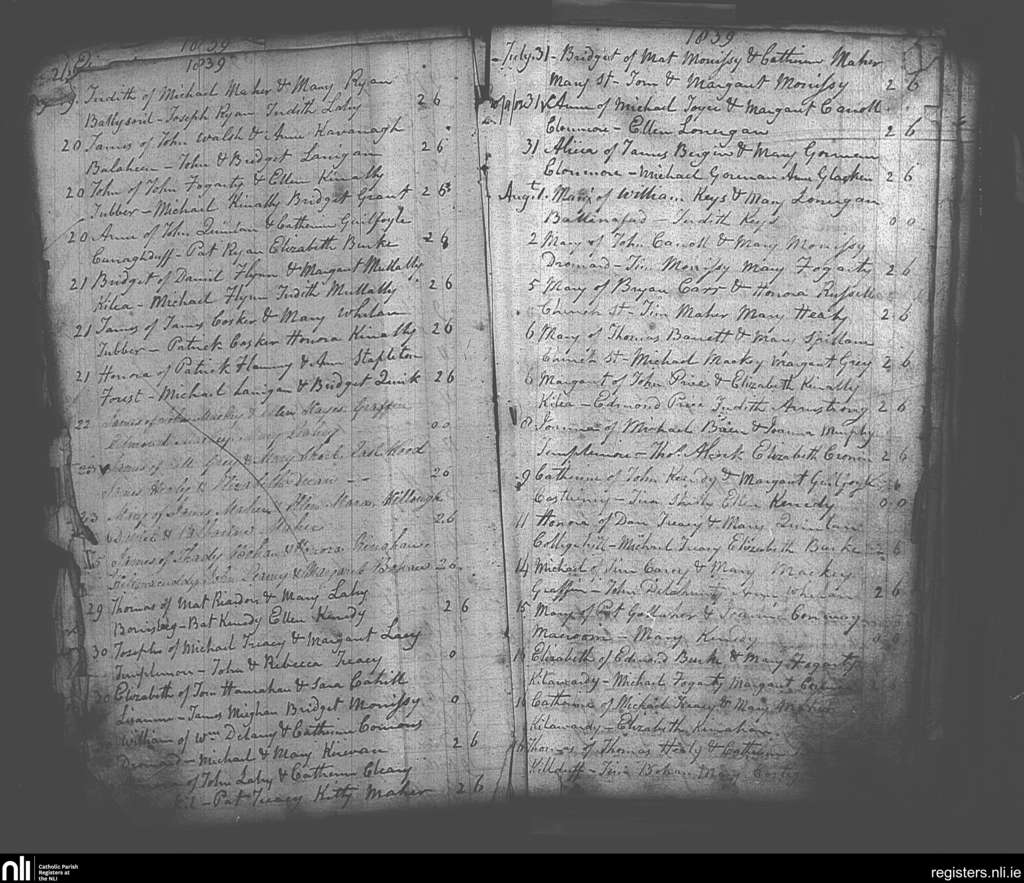 1839
1839
Judith of Michael Maher & Mary Ryan
Ballysoril - Joseph Ryan Judith Lahy 2 6
20 James of John Walsh & Ann Kavanagh
Balaheen - John & Bridget Lanigan 2 6
20 John of John Fogarty & Ellen Kinally
Tubber - Michael Kinally Bridget Grant 2 6
20 Anne of John Quinlan & Catherin Guilfoyle
Curraghduff - Pat Ryan Elizabeth Burke 2 6
21 Bridget of Daniel Flynn & Margaret Mullally
Kilea - Michael Flynn Judith Mullally 2 6
21 James of James Cosker & Mary Whelan
Tubber - Patrick Cosker Honora Kinally 2 6
21 Honora of Patrick Flannery & Ann Stapleton
Forest - Michael Lanigan & Bridget Quirk 2 6
22 James of John Mackey & Ellen Hayes Graffin
Edmond Mackey Mary 0 0
James of Grey & Mary East Wood
James Healy & Elizabeth 2 0
Mary of James Maher & Ellen Killough
& Maher 2 6
James of Thady Bohan & Honora
John & Margaret 2 6
29 Thomas of Mat Riardon & Mary Lahy
Borrisbeg - Bat Kenedy Ellen Kenedy 2 6
30 Josephs of Michael Treacy & Margaret Lacy
Templemore - John & Rebecca Treacy 0
30 Elizabeth of Tom Hanrahan & Sara Cahill
Lisanure - James Mieghan Bridget Morrissy 0
William of Wm Delany & Catherin Connors
Dromard - Michael & Mary Kirwan 2 6
of John Lahy & Catherin Cleary
- Pat Treacy Kitty Maher 2 6
1839
July 31 - Bridget of Mat Morrissy & Catherin Maher
Mary St - Tom & Margaret Morrissy 2 6
31 Anne of Michael Joyce & Margaret Carroll
Clonmore - Ellen Lonergan 2 6
31 Alicia of James Bergin & Mary Gorman
Clonmore - Michael Gorman Ann Glasken 2 6
Augt. 1 - Maria of William Keys & Mary Lonergan
Ballinafad - Judith Keys 0 0
2 Mary of John Carroll & Mary Morrissy
Dromard - Tim Morrissy Mary Fogarty 2 6
5 Mary of Bryan Carr & Honora Russell
Church St - Tim Maher Mary Healy 2 6
6 Mary of Thomas Barrett & Mary Spillam
Church St - Michael Mackey Margaret Grey 2 6
6 Margaret of John Price & Elizabeth Kinally
Kilea - Edmond Price Judith Armstrong 2 6
8 of Michael & Joanna Murphy
Templemore - Thos. Elizabeth Cronin 2 6
9 Catherine of John Kenedy & Margaret Guilfoyle
- Tim Ellen Kenedy 0 0
11 Honora of Dan Treacy & Mary Quinlan
College hill - Michael Treacy Elizabeth Burke 2 6
14 Michael of Tim Carey & Mary Mackey
Graffin - John Delahunty Ann Whelan 2 6
15 Mary of Pat Gallaher & Joanna Conway
Macroom - Mary Kinsey 0 0
Elizabeth of Edmond Burke & Mary Fogarty
Kilawardy - Michael Fogarty Margaret
16 Catherine of Michael Treacy & Mary Maher
Kilawardy - Elizabeth
16 Thomas of Thomas Healy & Catherine
Killduff - Tim Bohan Mary
nli
Catholic Parish
Registers at
the NLI
registers.nli.ie